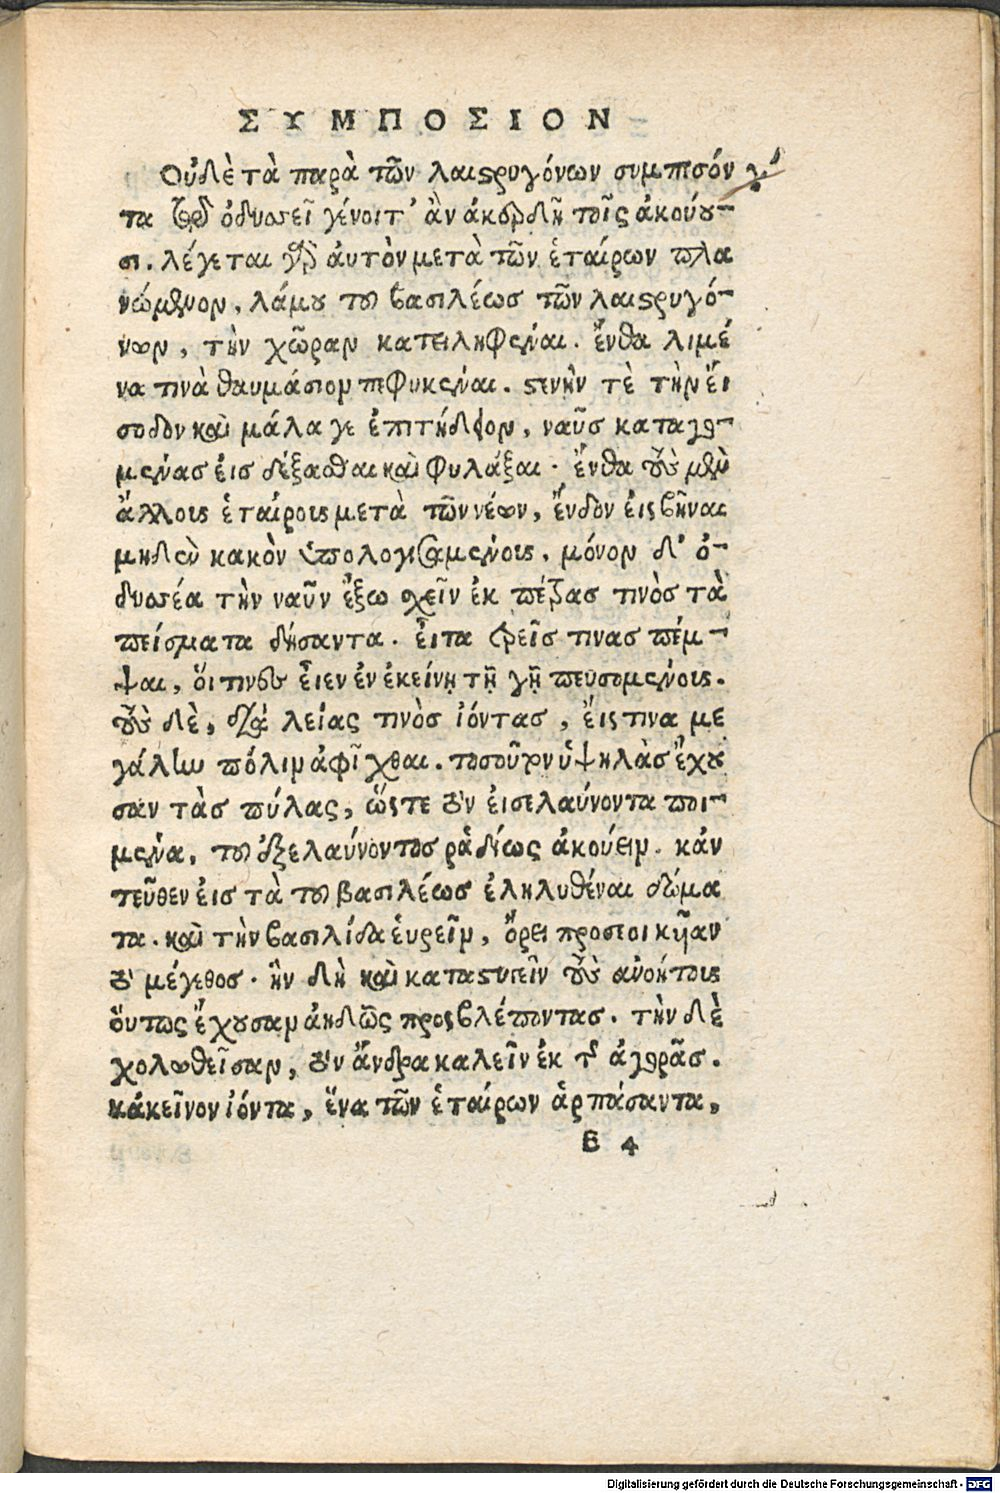 ΣΥΜΠΟΣΙΟΝ
Οὐδὲ τὰ παρὰ τῶν λαιστρυγόνων συμπεσόν γ´
τα τῷ ὀδυσσεῖ γένοιτ' ἂν ἀκερδῆ τοῖς ἀκούου-
σι. λέγεται γὰρ ἀυτὸν μετὰ τῶν ἑταίρων πλα
νώμενον, λάμου τοῦ βασιλέως τῶν λαιστρυγό-
νων, τὴν χῶραν κατειληφέναι. ἔνθα λιμέ
να τινὰ θαυμάσιον πεφυκέναι. στενὴν τὲ τὴν ἔι
σοδον καὶ μάλα γε ἐπιτήδειον, ναῦς καταγο-
μένας ἐις δέξασθαι καὶ φυλάξαι. ἔνθα τοὺς μὲν
ἄλλοις ἑταίροις μετὰ τῶν νέων, ἔνδον ἐις βῆναι
μηδὲν κακὸν ὑπολογισαμένοις, μόνον δ' ὀ-
δυσσέα τὴν ναῦν ἔξω σχεῖν ἐκ πέτρας τινὸς τὰ
πείσματα δήσαντα. ἔιτα τρεῖς τινας πέμ-
ψαι, ὅι τινες ἔιεν ἐν ἐκείνῃ τῇ γῇ πευσομένοις.
τοὺς δὲ, διὰ λείας τινὸς ἰόντας, ἔις τινα με
γάλην πόλιν ἀφῖχθαι. τοσοῦτον ὑψηλὰς ἔχου
σαν τὰς πύλας, ὥστε τὸν ἐισελαύνοντα ποι-
μένα, τοῦ ἐξελαύνοντος ῥαδίως ἀκούειν. κἀν
τεῦθεν ἐις τὰ τοῦ βασιλέως ἐληλυθέναι δώμα
τα. καὶ τὴν βασιλίδα ἑυρεῖν, ὄρει προσεοικῆαν
τὸ μέγεθος. ἣν δὴ καὶ καταστυγεῖν τοὺς ἀνοήτοις
ὅυτως ἔχουσαν ἀηδῶς προς βλέποντας. τὴν δὲ
χολωθεῖσαν, τὸν ἄνδρα καλεῖν ἐκ τῆς ἀγορᾶς.
κἀκεῖνον ἰόντα, ἕνα τῶν ἑταίρων ἁρπάσαντα,
B 4
Digitalisierung gefördert durch die Deutsche Forschungsgemeinschaft - DFG